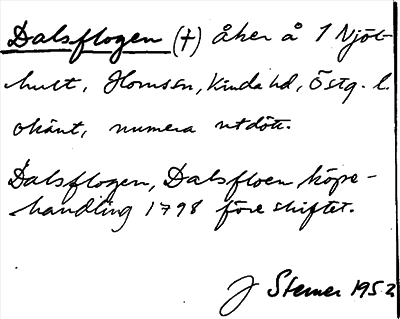 Dalsflogen (†) åker å 1 Njöt-
hult, Hornssn, Kinda hd, Östg. l.
okänt, numera utdött.
Dalsflogen, Dalsfloen köpe-
handling 1798 före skiftet.
J Sterner 1952